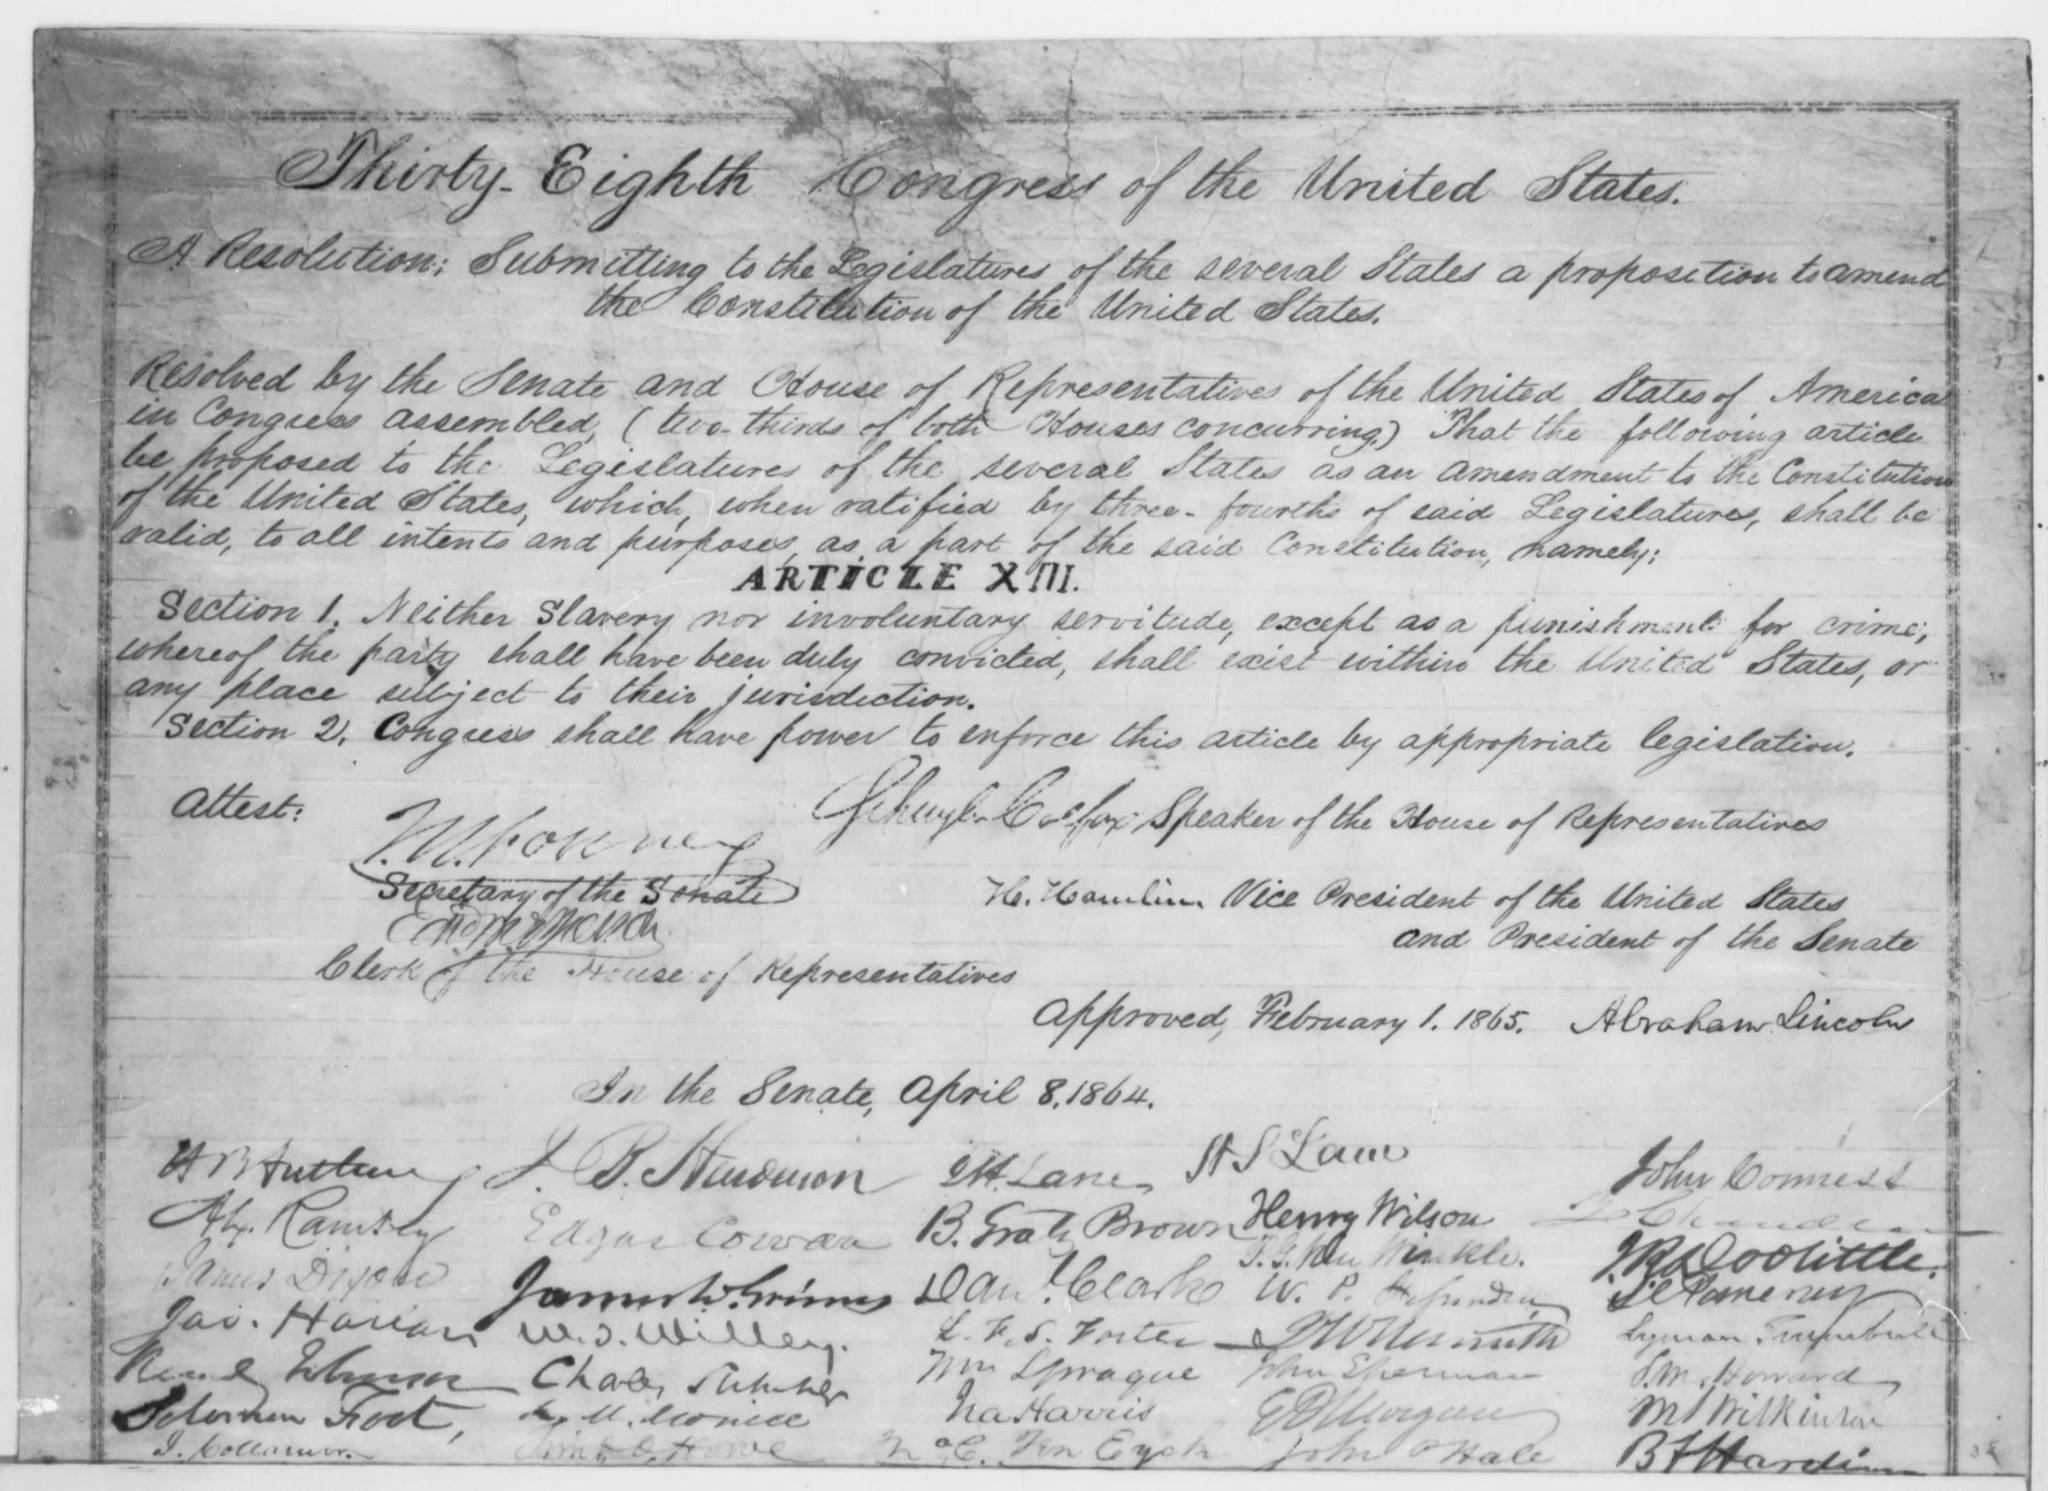 Thirty-Eighth Congress of the United States.
A Resolution; Submitting to the Legislatures of the several States a proposition to amend
the Constitution of the United States.
Resolved by the Senate and House of Representatives of the United States of America
in Congress assembled, (two-thirds of both Houses concurring,) That the following article
be proposed to the Legislatures of the several States as an amendment to the Constitution
of the United States, which, when ratified by three-fourths of said Legislatures, shall be
valid, to all intents and purposes, as a part of the said Constitution, namely;
ARTICLE XIII.
Section 1. Neither Slavery nor involuntary servitude, except as a punishment for crime,
whereof the party shall have been duly convicted, shall exist within the United States, or
any place subject to their jurisdiction.
Section 2. Congress shall have power to enforce this article by appropriate legislation.
Attest:
Schuyler Colfax Speaker of the House of Representatives
J.W. Forney
Secretary of the Senate
H. Hamlin Vice President of the United States
and President of the Senate
Edwd McPherson
Clerk of the House of Representatives
Approved, February 1. 1865. Abraham Lincoln
In the Senate, April 8, 1864.
J. B. Henderson J H. Lane H S Lane John Conness
Alex. Ramsey Edgar Cowan B. Gratz Brown Henry Wilson
James Dixon James W. Grimes Dan. Clark P. G. Van Winkle. J. R. Doolittle
Jas. Harlan W. T. Willey. L. F. S. Foster J W Nesmith S. C. Pomeroy
Charles Sumner Wm Sprague John Sherman Lyman Trumbull
Solomon Foot, Ira Harris E D Morgan J. M. Howard
J. Collamer T. O. Howe Ten Eyck John P Hale M S Wilkinson
B F Harding